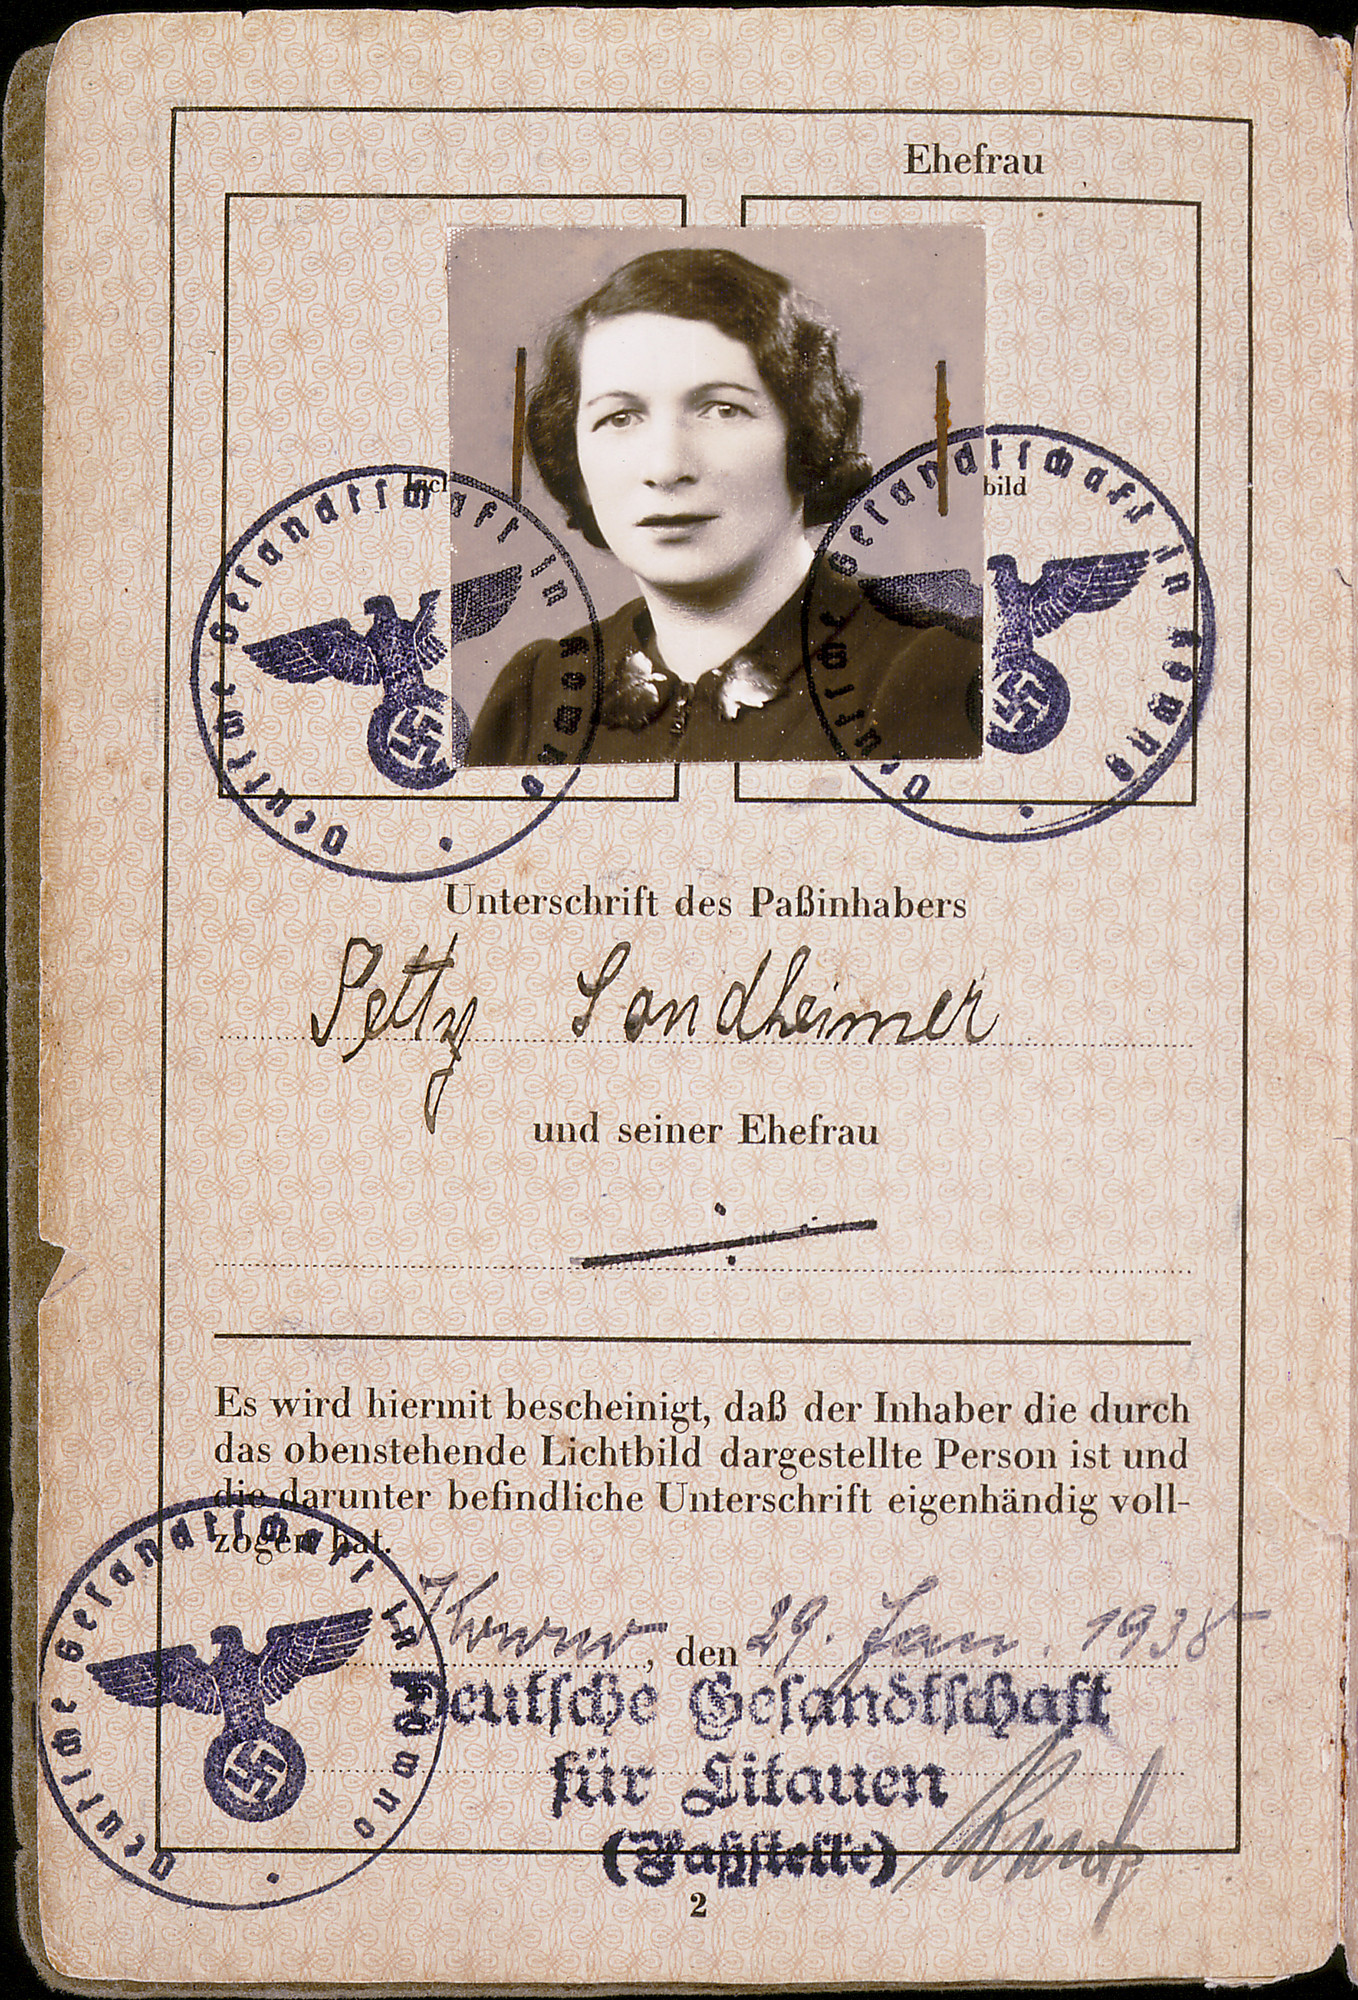 Ehefrau
bild
Deutsche Gesandtschaft in Kowno
Deutsche Gesandtschaft in Kowno
Unterschrift des Paßinhabers
Setty Sondheimer
und seiner Ehefrau
Es wird hiermit bescheinigt, daß der Inhaber die durch
das obenstehende Lichtbild dargestellte Person ist und
die darunter befindliche Unterschrift eigenhändig voll-
zogen hat.
Deutsche Gesandtschaft in Kowno
, den 29. Jan. 1938
Deutsche Gesandtschaft
für Litauen
(Paßstelle)
2